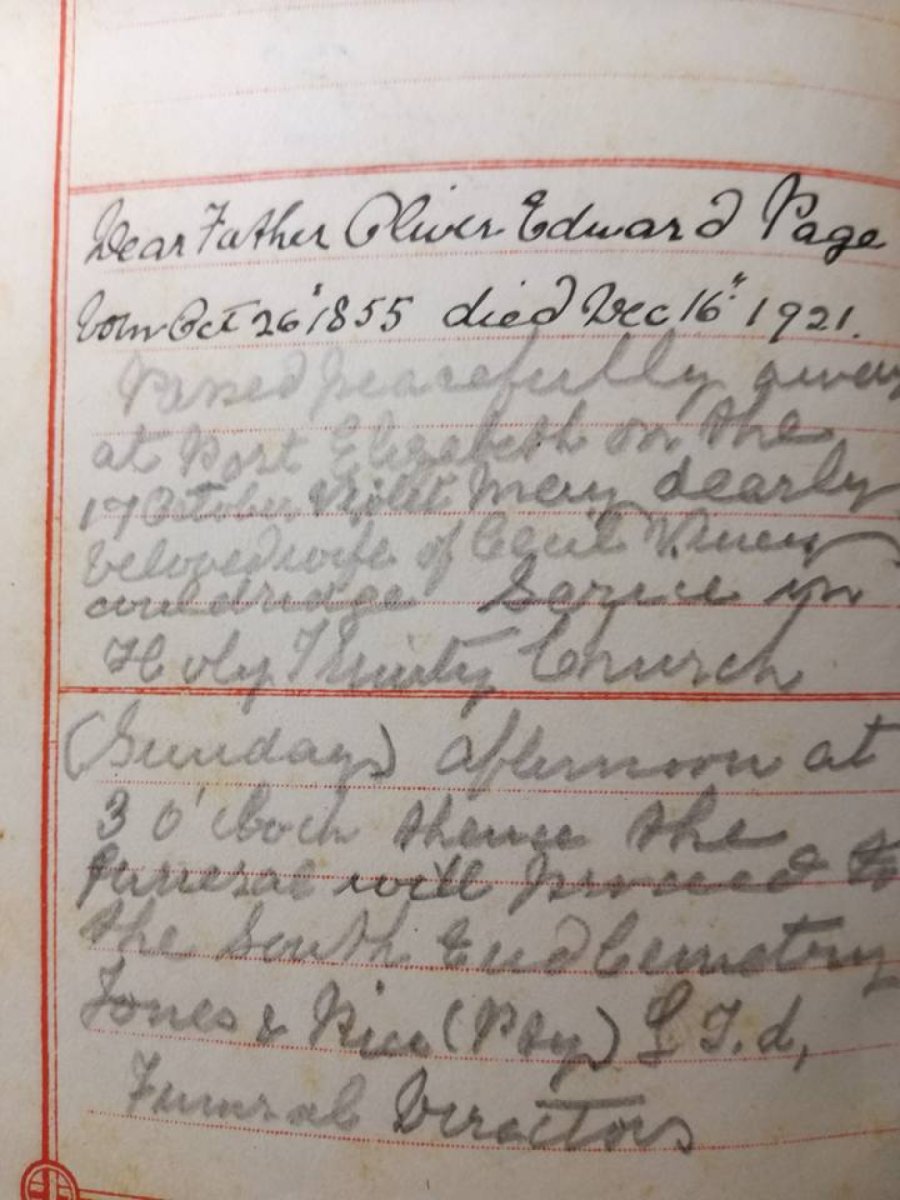 Dear Father Oliver Edward Page
born Oct 26" 1855 died Dec 16" 1921.
Passed peacefully away
at Port Elizabeth on the
17 October Violet Mary dearly
beloved wife of Cecil
couldridge Service in
Holy Trinity Church
(Sunday) afternoon at
3 o'clock thence the
funeral will proceed to
the South End Cemetery
Jones & (Pty) LTd,
Funeral Directors